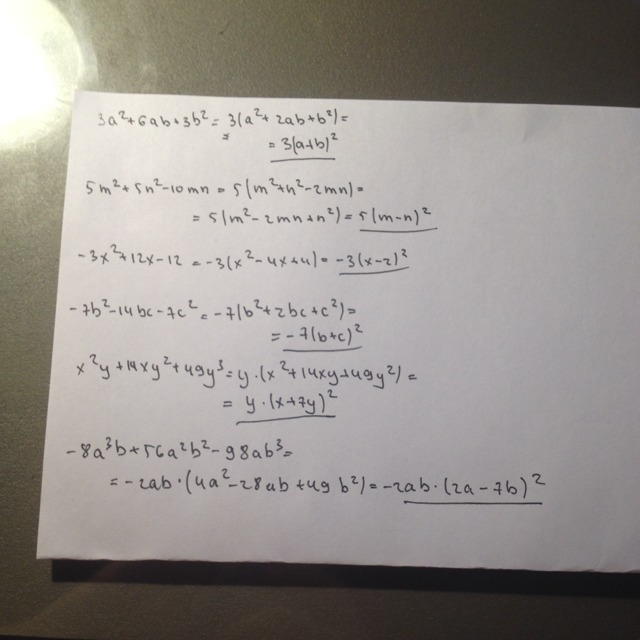 3a²+6ab+3b² = 3(a²+2ab+b²)=
= 3(a+b)²
5m²+5n²-10mn = 5(m²+n²-2mn)=
= 5(m²-2mn+n²)=5(m-n)²
-3x²+12x-12 = -3(x²-4x+4)=-3(x-2)²
-7b²-14bc-7c²=-7(b²+2bc+c²)=
= -7(b+c)²
x²y+14xy²+49y³=y·(x²+14xy+49y²)=
= y·(x+7y)²
-8a³b+56a²b²-98ab³=
= -2ab·(4a²-28ab+49b²)=-2ab·(2a-7b)²